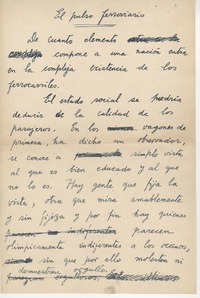 El pulso ferroviario
De cuanto elemento
compone a una nación entra
en la compleja existencia de los
ferrocarriles.
El estado social se podría
deducir de la calidad de los
pasajeros. En los vagones de
primera, ha dicho un observador,
se conoce a simple vista
al que es bien educado y al que
no lo es. Hay gente que fija la
vista, otra que mira amablemente
y sin fijeza y por fin hay quienes
parecen
olímpicamente indiferentes a los vecinos,
sin que por ello molesten ni
demuestren orgullo.